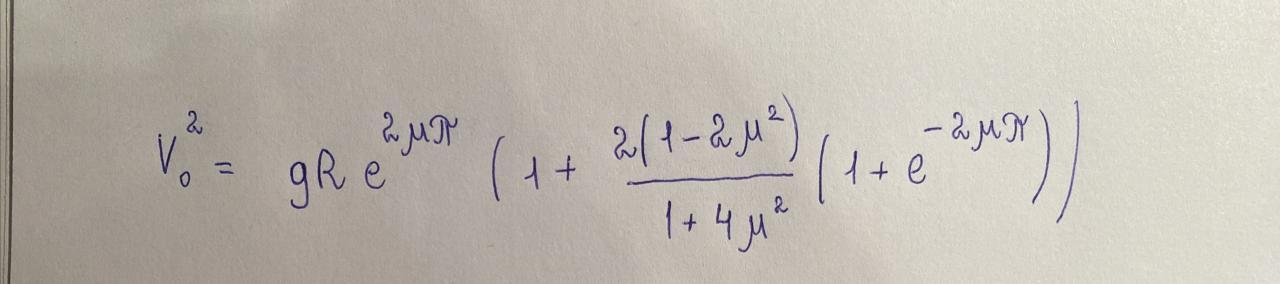 V₀² = gR e^{2μπ} (1 + \frac{2(1-2μ²)}{1+4μ²} (1 + e^{-2μπ}))